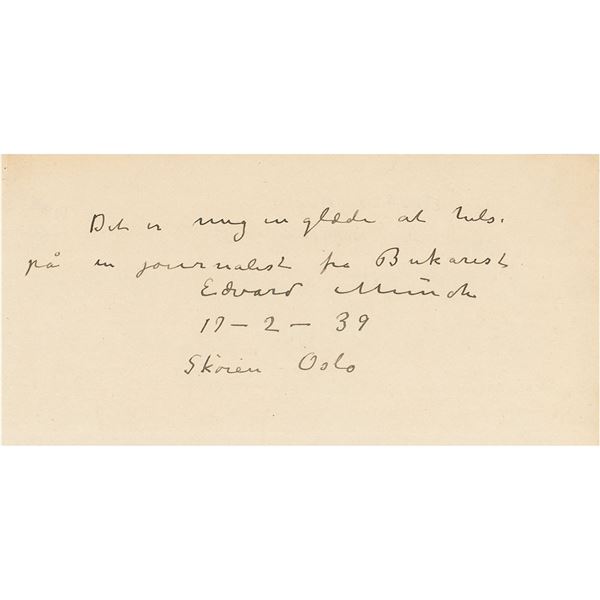 Det er mig en glæde at hils.
på en journalist fra Bukarest
Edvard Munch
17-2-39
Skøien Oslo